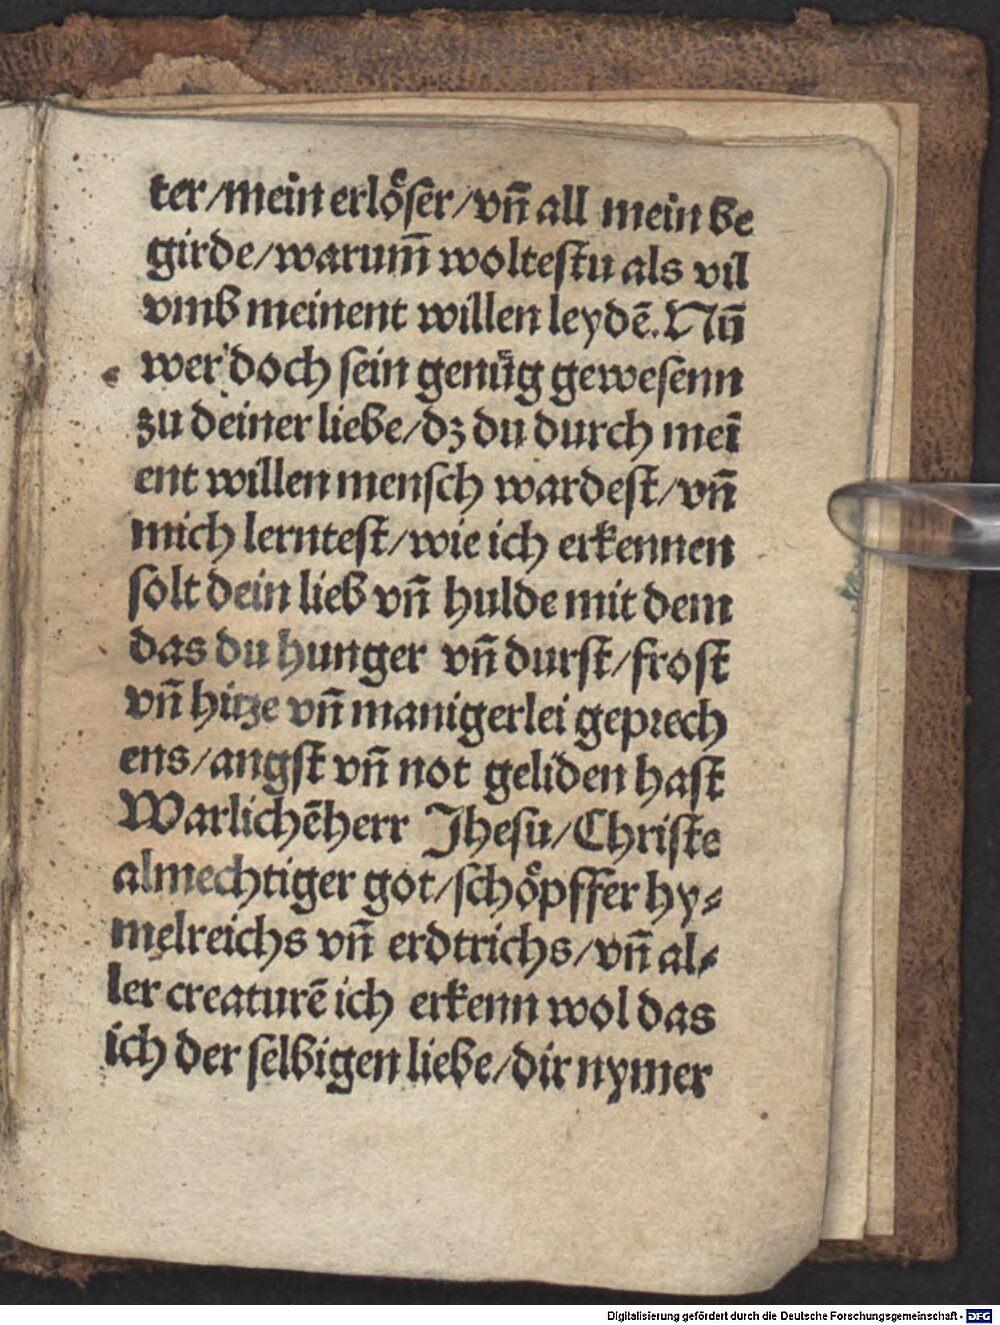 ter/mein erloͤser/vñ all mein be
girde/warum̄ woltestu als vil
vmb meinent willen leydē. Nū
wer doch sein genüg gewesenn
zu deiner liebe/dz du durch meī
ent willen mensch wardest/vñ
mich lerntest/wie ich erkennen
solt dein lieb vñ hulde mit dem
das du hunger vñ durst/frost
vñ hitze vñ manigerlei geprech
ens/angst vñ not geliden hast
Warlichē herr Jhesu/Christe
almechtiger got/schoͤpffer hy⸗
melreichs vñ erdtrichs/vñ al⸗
ler creaturē ich erkenn wol das
ich der selbigen liebe/dir nymer
Digitalisierung gefördert durch die Deutsche Forschungsgemeinschaft - DFG